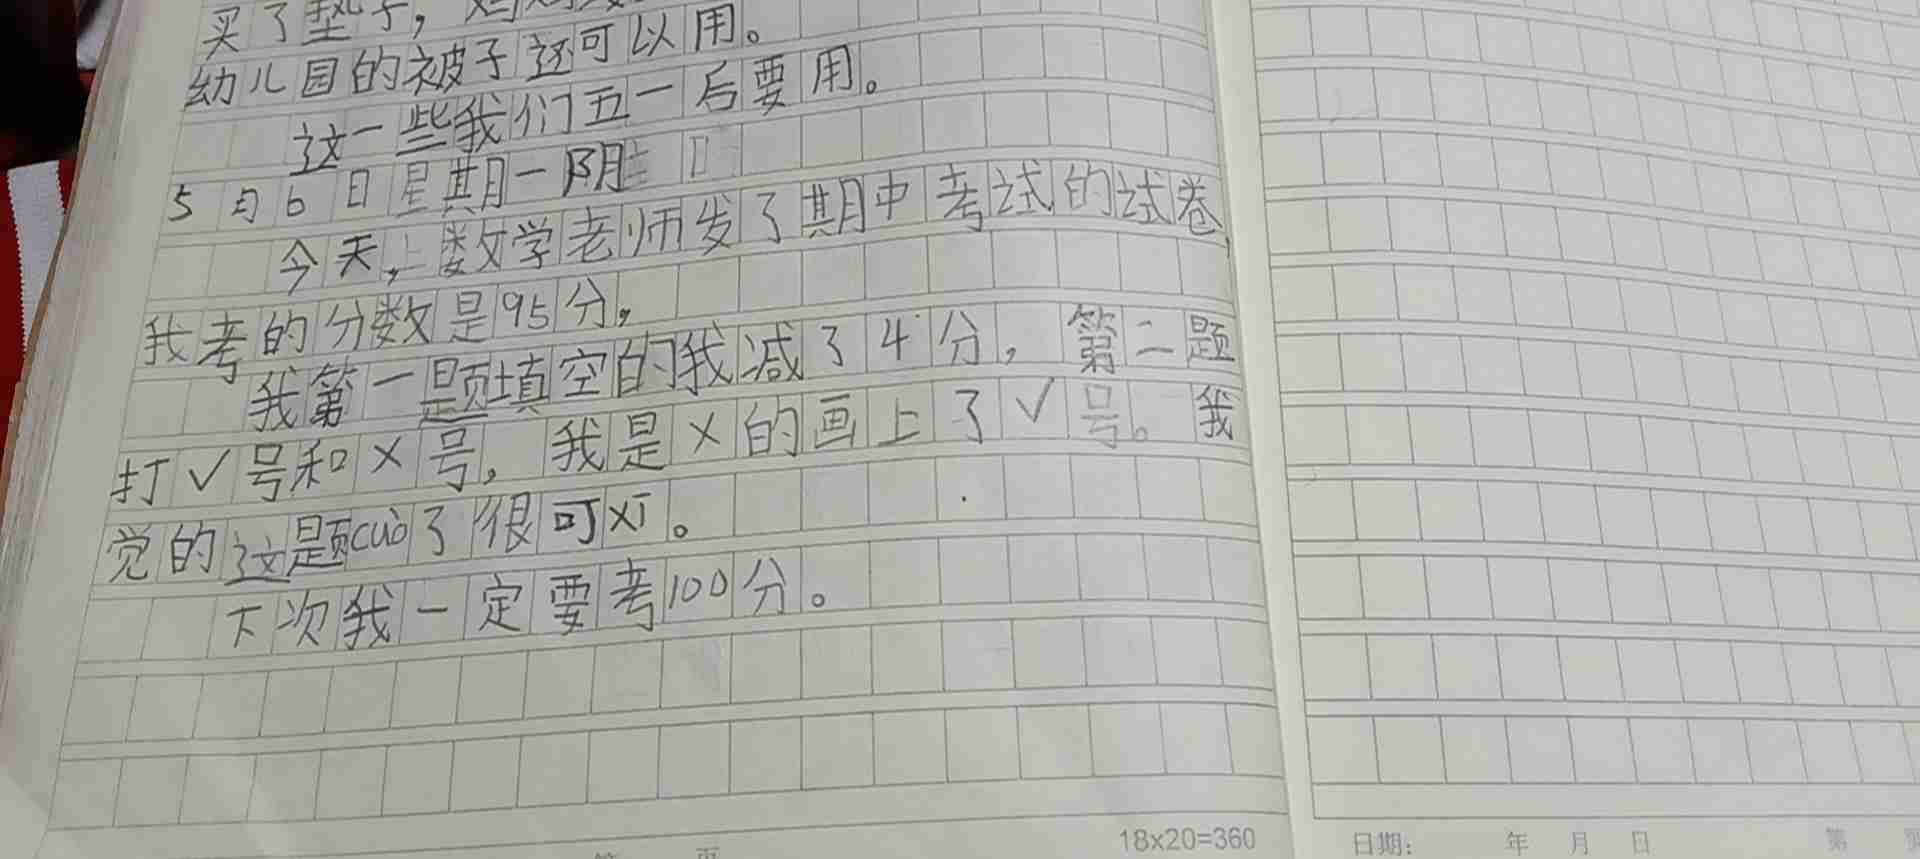 买了垫子，妈妈
幼儿园的被子还可以用。
这一些我们五一后要用。
5月6日星期一阴
今天，上数学老师发了期中考试的试卷，
我考的分数是95分，
我第一题填空的我减了4分，第二题
打✓号和×号，我是×的画上了✓号。我
觉的这题cuò了很可xī。
下次我一定要考100分。
18x20=360
日期： 年 月 日 第 页
第 页